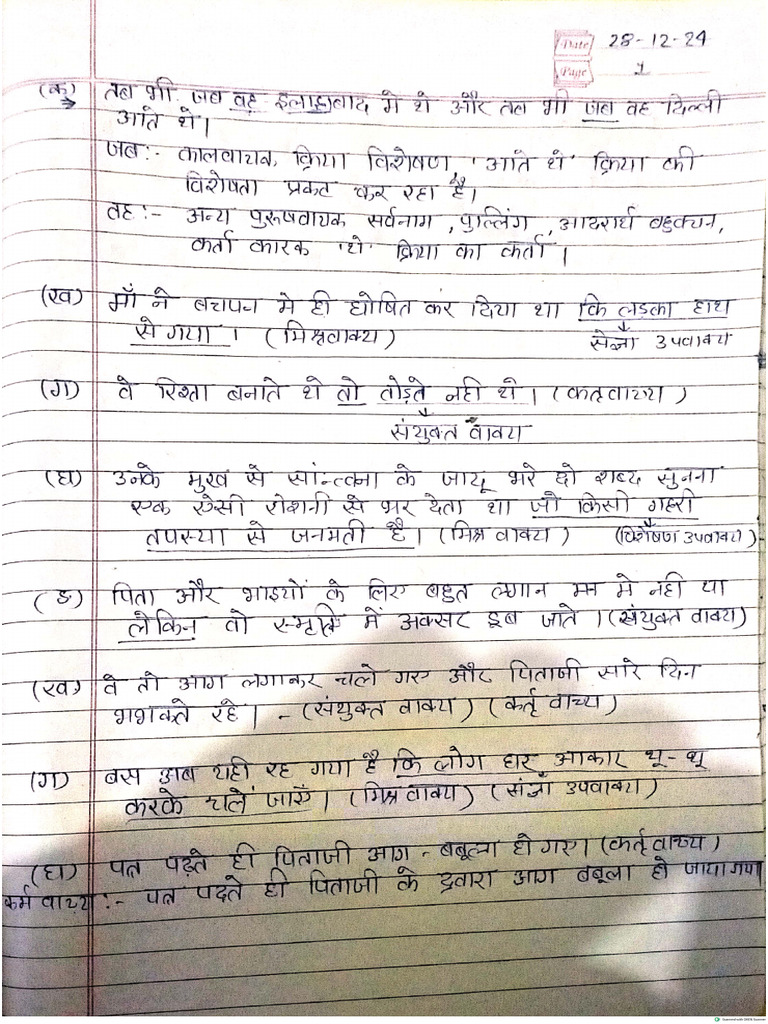 Date 28-12-24
Page 1
(क) तब भी जब वह इलाहाबाद मे थे और तब भी जब वह दिल्ली
आते थे।
जब:- कालवाचक क्रिया विशेषण, 'आते थे' क्रिया की
विशेषता प्रकट कर रहा है।
वह:- अन्य पुरुषवाचक सर्वनाम, पुल्लिंग, आदरार्थ बहुवचन,
कर्ता कारक 'थे' क्रिया का कर्ता।
(ख) माँ ने बचपन मे ही घोषित कर दिया था कि लडका हाथ
से गया। (मिश्रवाक्य) संज्ञा उपवाक्य
(ग) वे रिश्ता बनाते थे तो तोड़ते नही थे। (कतृवाच्य)
संयुक्त वाक्य
(घ) उनके मुख से सांन्तवना के जादू भरे दो शब्द सुनना
एक ऐसी रोशनी से भर देता था जो किसी गहरी
तपस्या से जनमती है। (मिश्र वाक्य) (विशेषण उपवाक्य)
(ङ) पिता और भाइयों के लिए बहुत लगान मन मे नही था
लेकिन वो स्मृति में अक्सर डूब जाते। (संयुक्त वाक्य)
(ख) वे तो आग लगाकर चले गए और पिताजी सारे दिन
भभकते रहे। - (संयुक्त वाक्य) (कर्तृ वाच्य)
(ग) बस अब यही रह गया है कि लोग हार आकार थू-थू
करके चले जाएँ। (मिश्र वाक्य) (संज्ञा उपवाक्य)
(घ) पत्र पढ़ते ही पिताजी आग-बबूला हो गए। (कर्तृ वाच्य)
कर्म वाच्य:- पत्र पढते ही पिताजी के द्वारा आग बबूला हो जाया गया